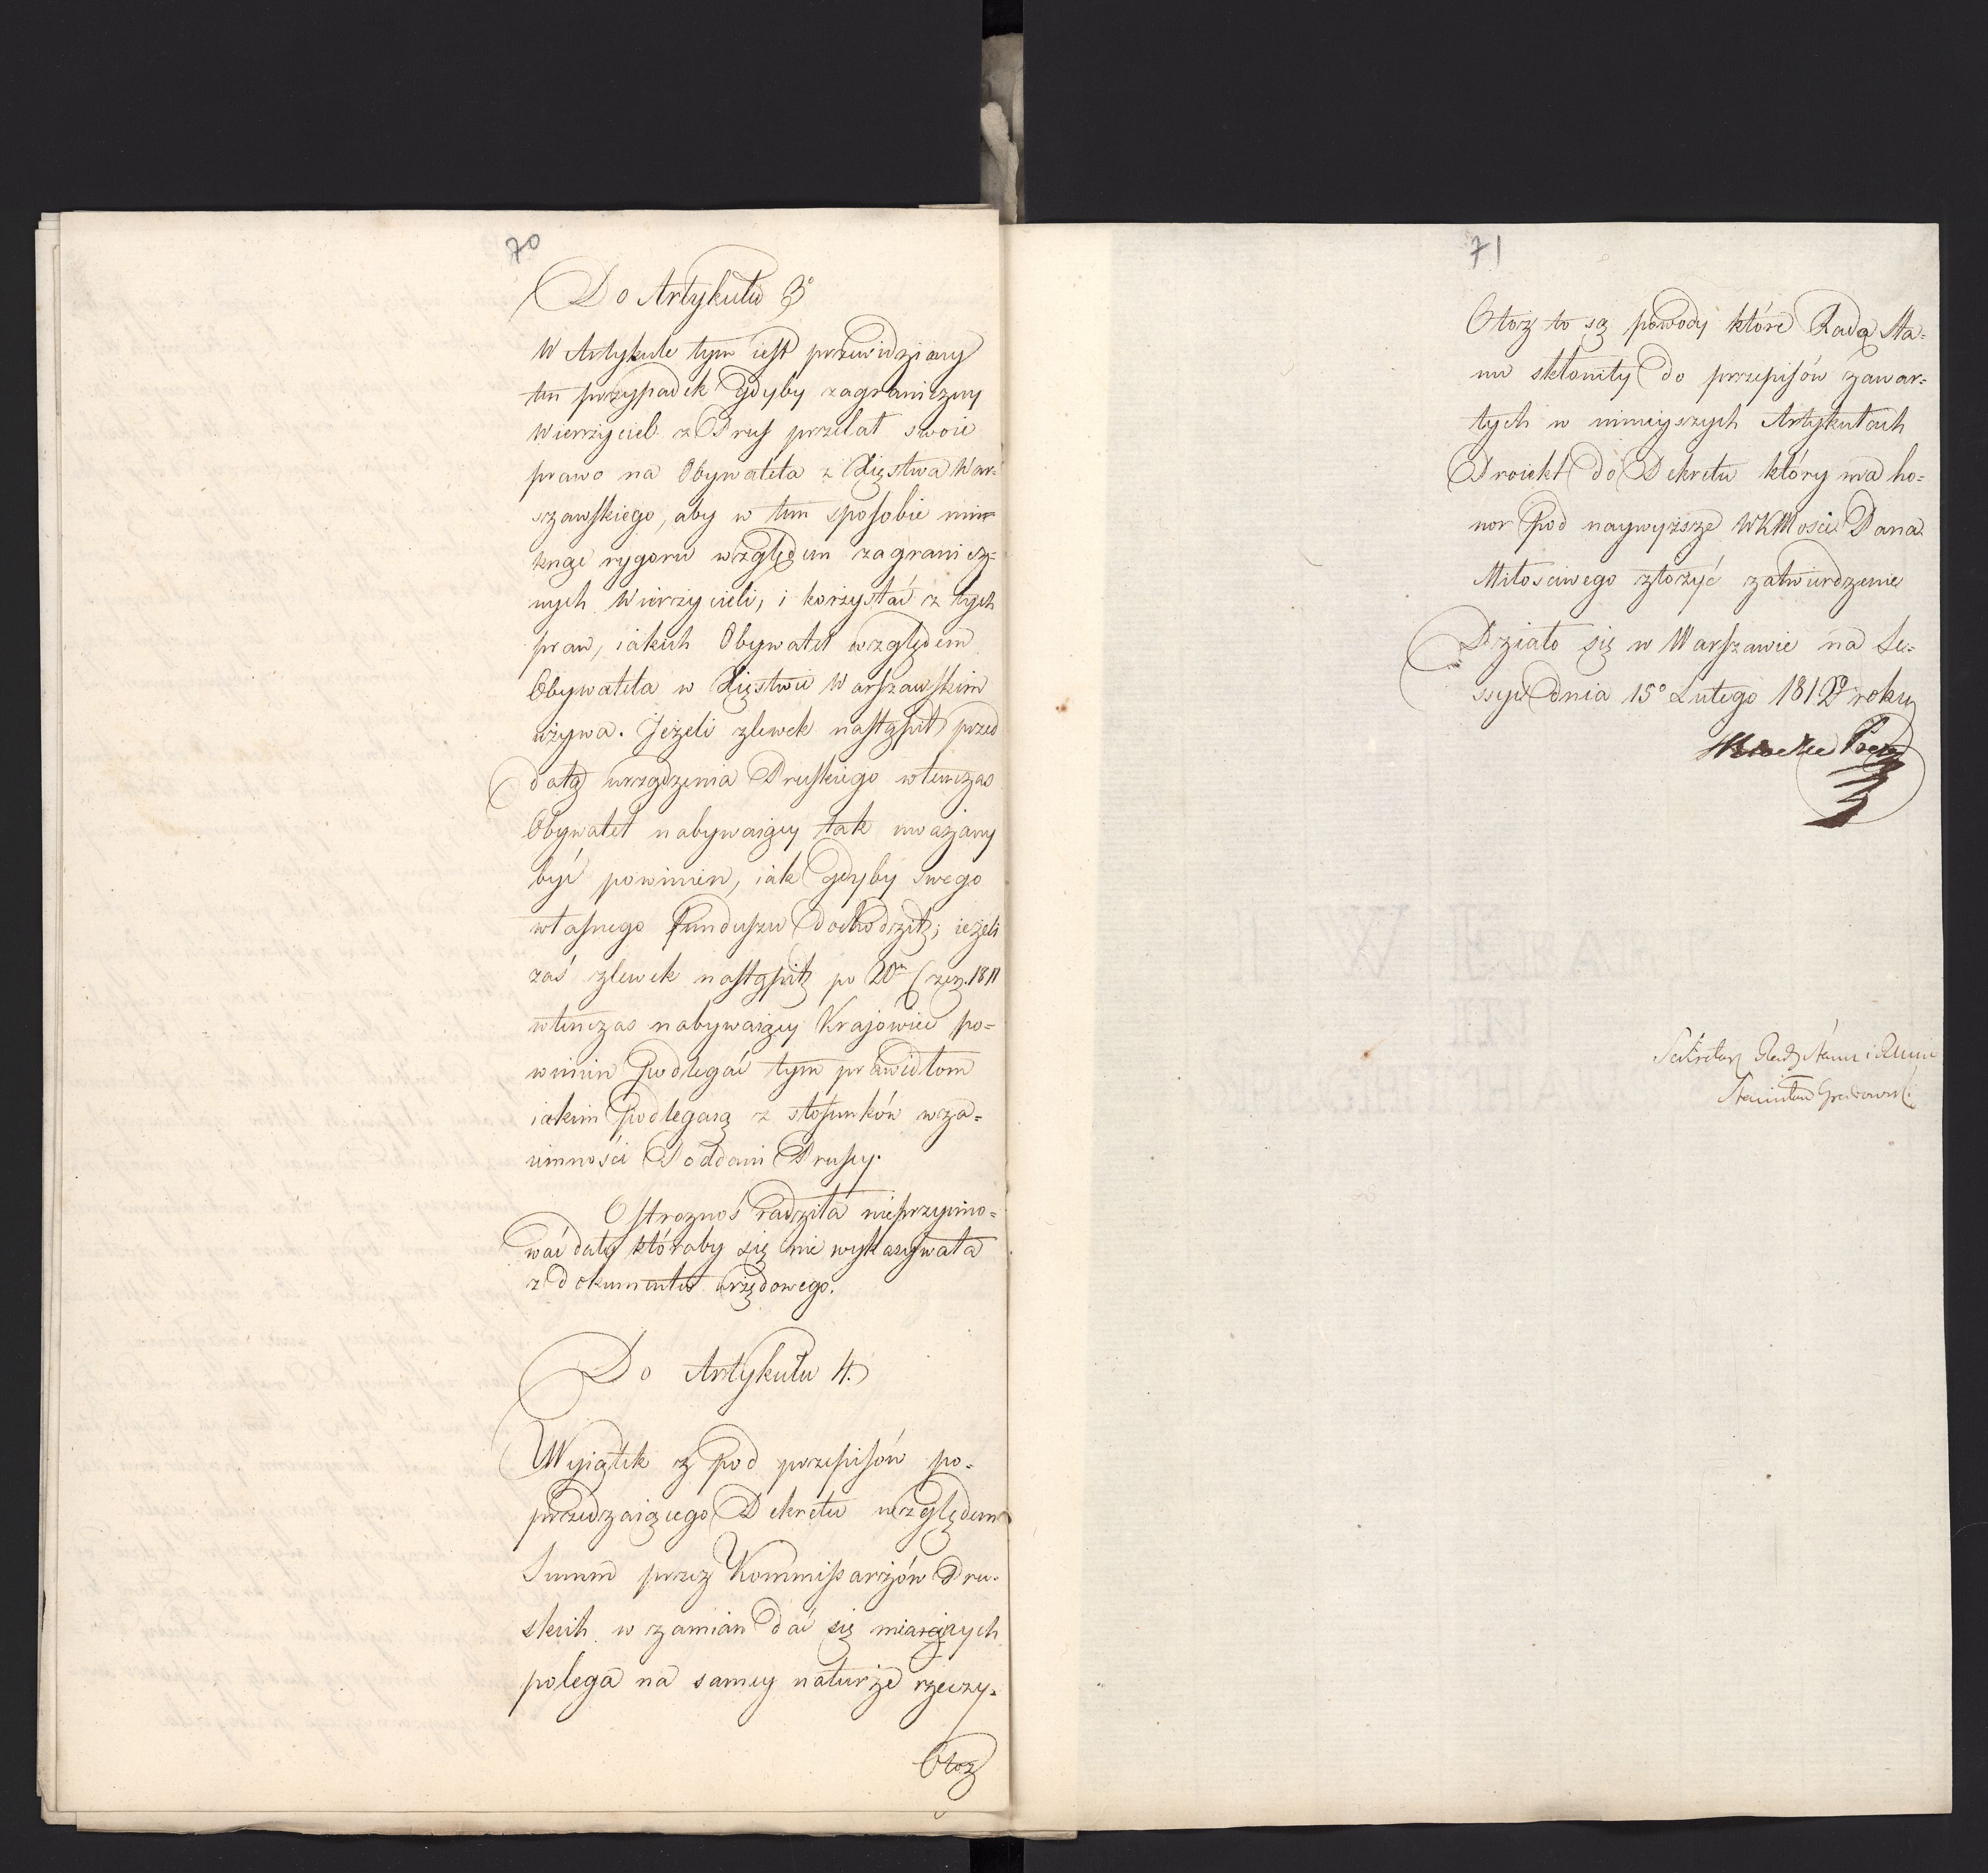 70
Do Artykułu 3º
W Artykule tym iest przewidziany
ten przypadek gdyby zagraniczny
Wierzyciel z Prus przelał swoie
prawo na Obywatela z Xięstwa War-
szawskiego, aby w tem sposobie
rygoru względem zagranicz-
nych Wierzycieli, i korzystać z tych
praw, iakich Obywatel względem
Obywatela w Xięstwie Warszawskim
używa. Jeżeli zlewek nastąpił przed
datą urządzenia Pruskiego wtenczas
Obywatel nabywaiący tak uważany
być powinien, iak gdyby swego
własnego funduszu dochodził; ieżeli
zaś zlewek nastąpił po 20m Czer. 1811
wtenczas nabywaiący Krajowiec po-
winien podlegać tym prawidłom
iakim podlegaią z stosunków wza-
iemności Poddani Pruscy.
Ostrożnoś radziła nieprzyimo-
wać daty któraby się nie wykazywała
z dokumentu urzędowego.
Do Artykułu 4.
Wyiątek z pod przepisów po-
przedzaiącego Dekretu względem
Summ przez Kommissarzów Pru-
skich w zamian dać się maiących
polega na samey naturze rzeczy.
Otoż
71
Otoż to są powody które Radę Sta-
nu skłoniły do przepisów zawar-
tych w ninieyszych Artykułach
Proiekt do Dekretu który ma ho-
nor pod naywyższe WKMości Pana
Miłościwego złożyć zatwierdzenie
Działo się w Warszawie na Se-
ssyi dnia 15º Lutego 1812º roku
Sekretarz Rady Stanu i
Stanisław Grabowski